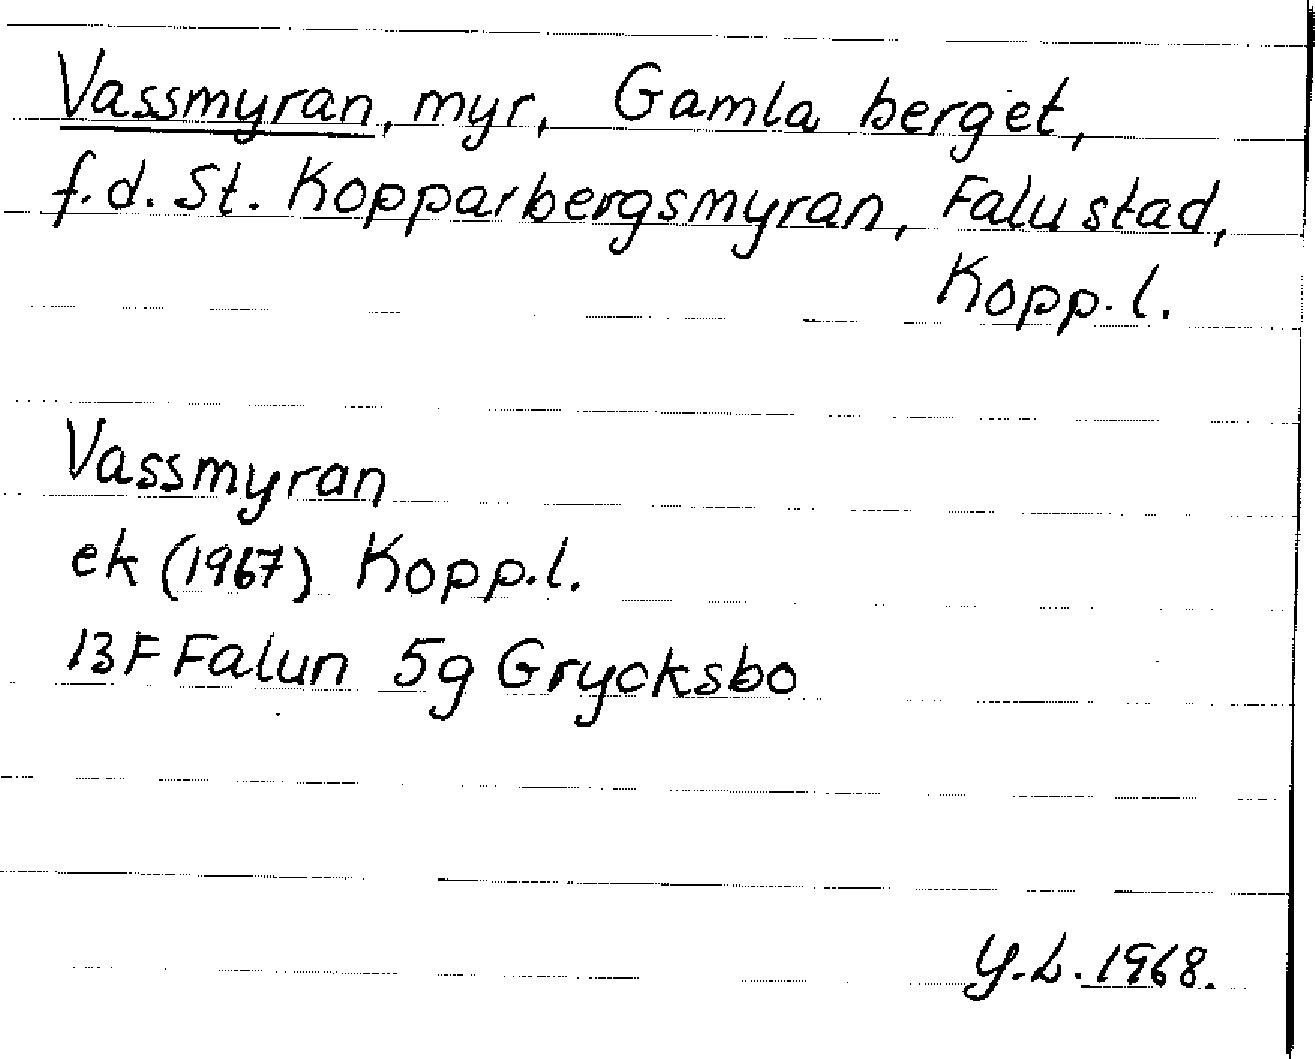 Vassmyran, myr, Gamla berget,
f.d. St. Kopparbergsmyran, Falu stad,
Kopp. l.
Vassmyran
ek (1967) Kopp.l.
13F Falun 5g Grycksbo
Y.L. 1968.